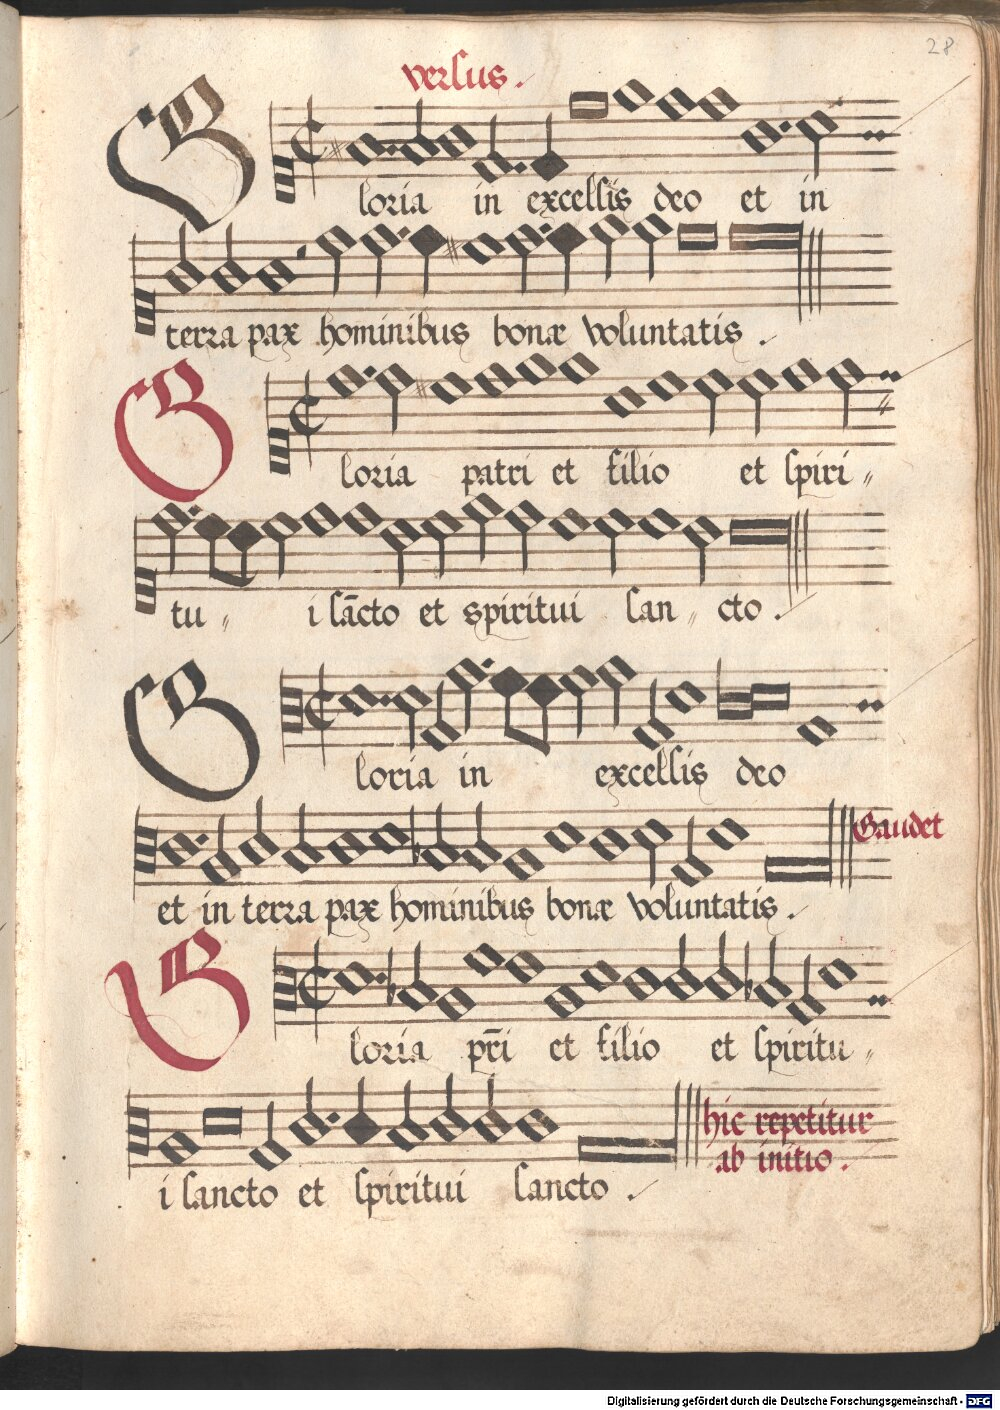 28
versus.
Gloria in excelsis deo et in
terra pax hominibus bonæ voluntatis.
Gloria patri et filio et spiri〃
tu〃 i sãcto et spiritui san〃cto.
Gloria in excelsis deo
Gaudet
et in terra pax hominibus bonæ voluntatis.
Gloria pr̃i et filio et spiritu〃
hic repetitur
ab initio.
i sancto et spiritui sancto.
Digitalisierung gefördert durch die Deutsche Forschungsgemeinschaft - DFG